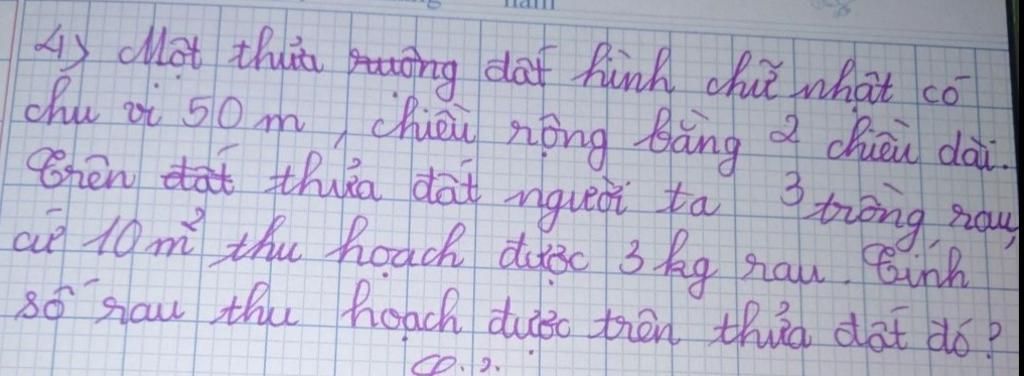 4) Một thửa ruộng đất hình chữ nhật có
chu vi 50 m, chiều rộng bằng 2/3 chiều dài.
Trên đất thửa đất người ta trồng rau,
cứ 10 m² thu hoạch được 3 kg rau. Tính
số rau thu hoạch được trên thửa đất đó?